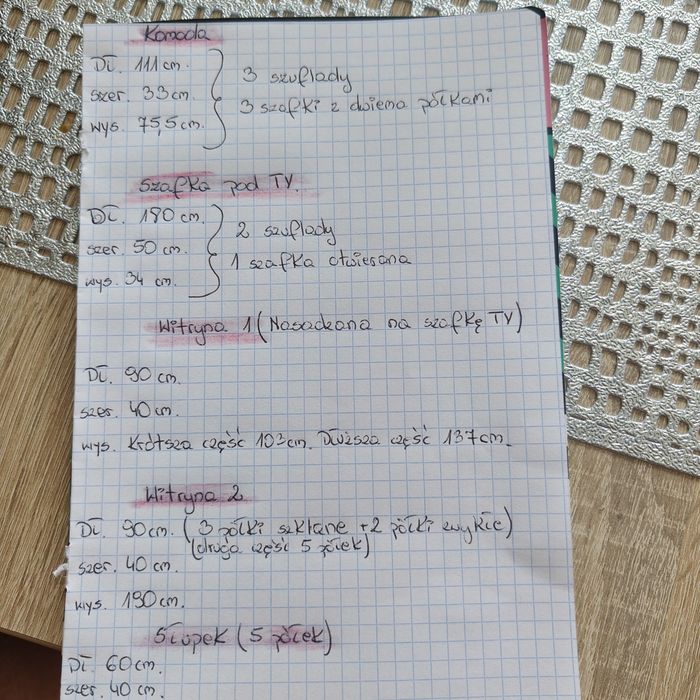 Komoda
Dł. 111 cm.
szer. 33 cm.
wys. 75,5 cm.
3 szuflady
3 szafki z dwiema półkami
Szafka pod TV.
Dł. 190 cm.
szer. 50 cm.
wys. 34 cm.
2 szuflady
1 szafka otwierana
Witryna 1 (Nasadzana na szafkę TV)
Dł. 90 cm.
szer. 40 cm.
wys. Krótsza część 103 cm. Dłuższa część 137 cm.
Witryna 2
Dł. 90 cm. (3 półki szklane + 2 półki zwykłe)
(druga część 5 półek)
szer. 40 cm.
wys. 190 cm.
Słupek (5 półek)
Dł. 60 cm.
szer. 40 cm.